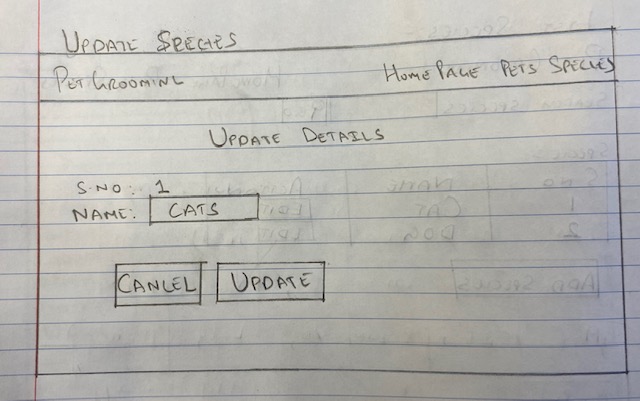 UPDATE SPECIES
PET GROOMING HOME PAGE PETS SPECIES
UPDATE DETAILS
S.NO: 1
NAME: CATS
CANCEL UPDATE